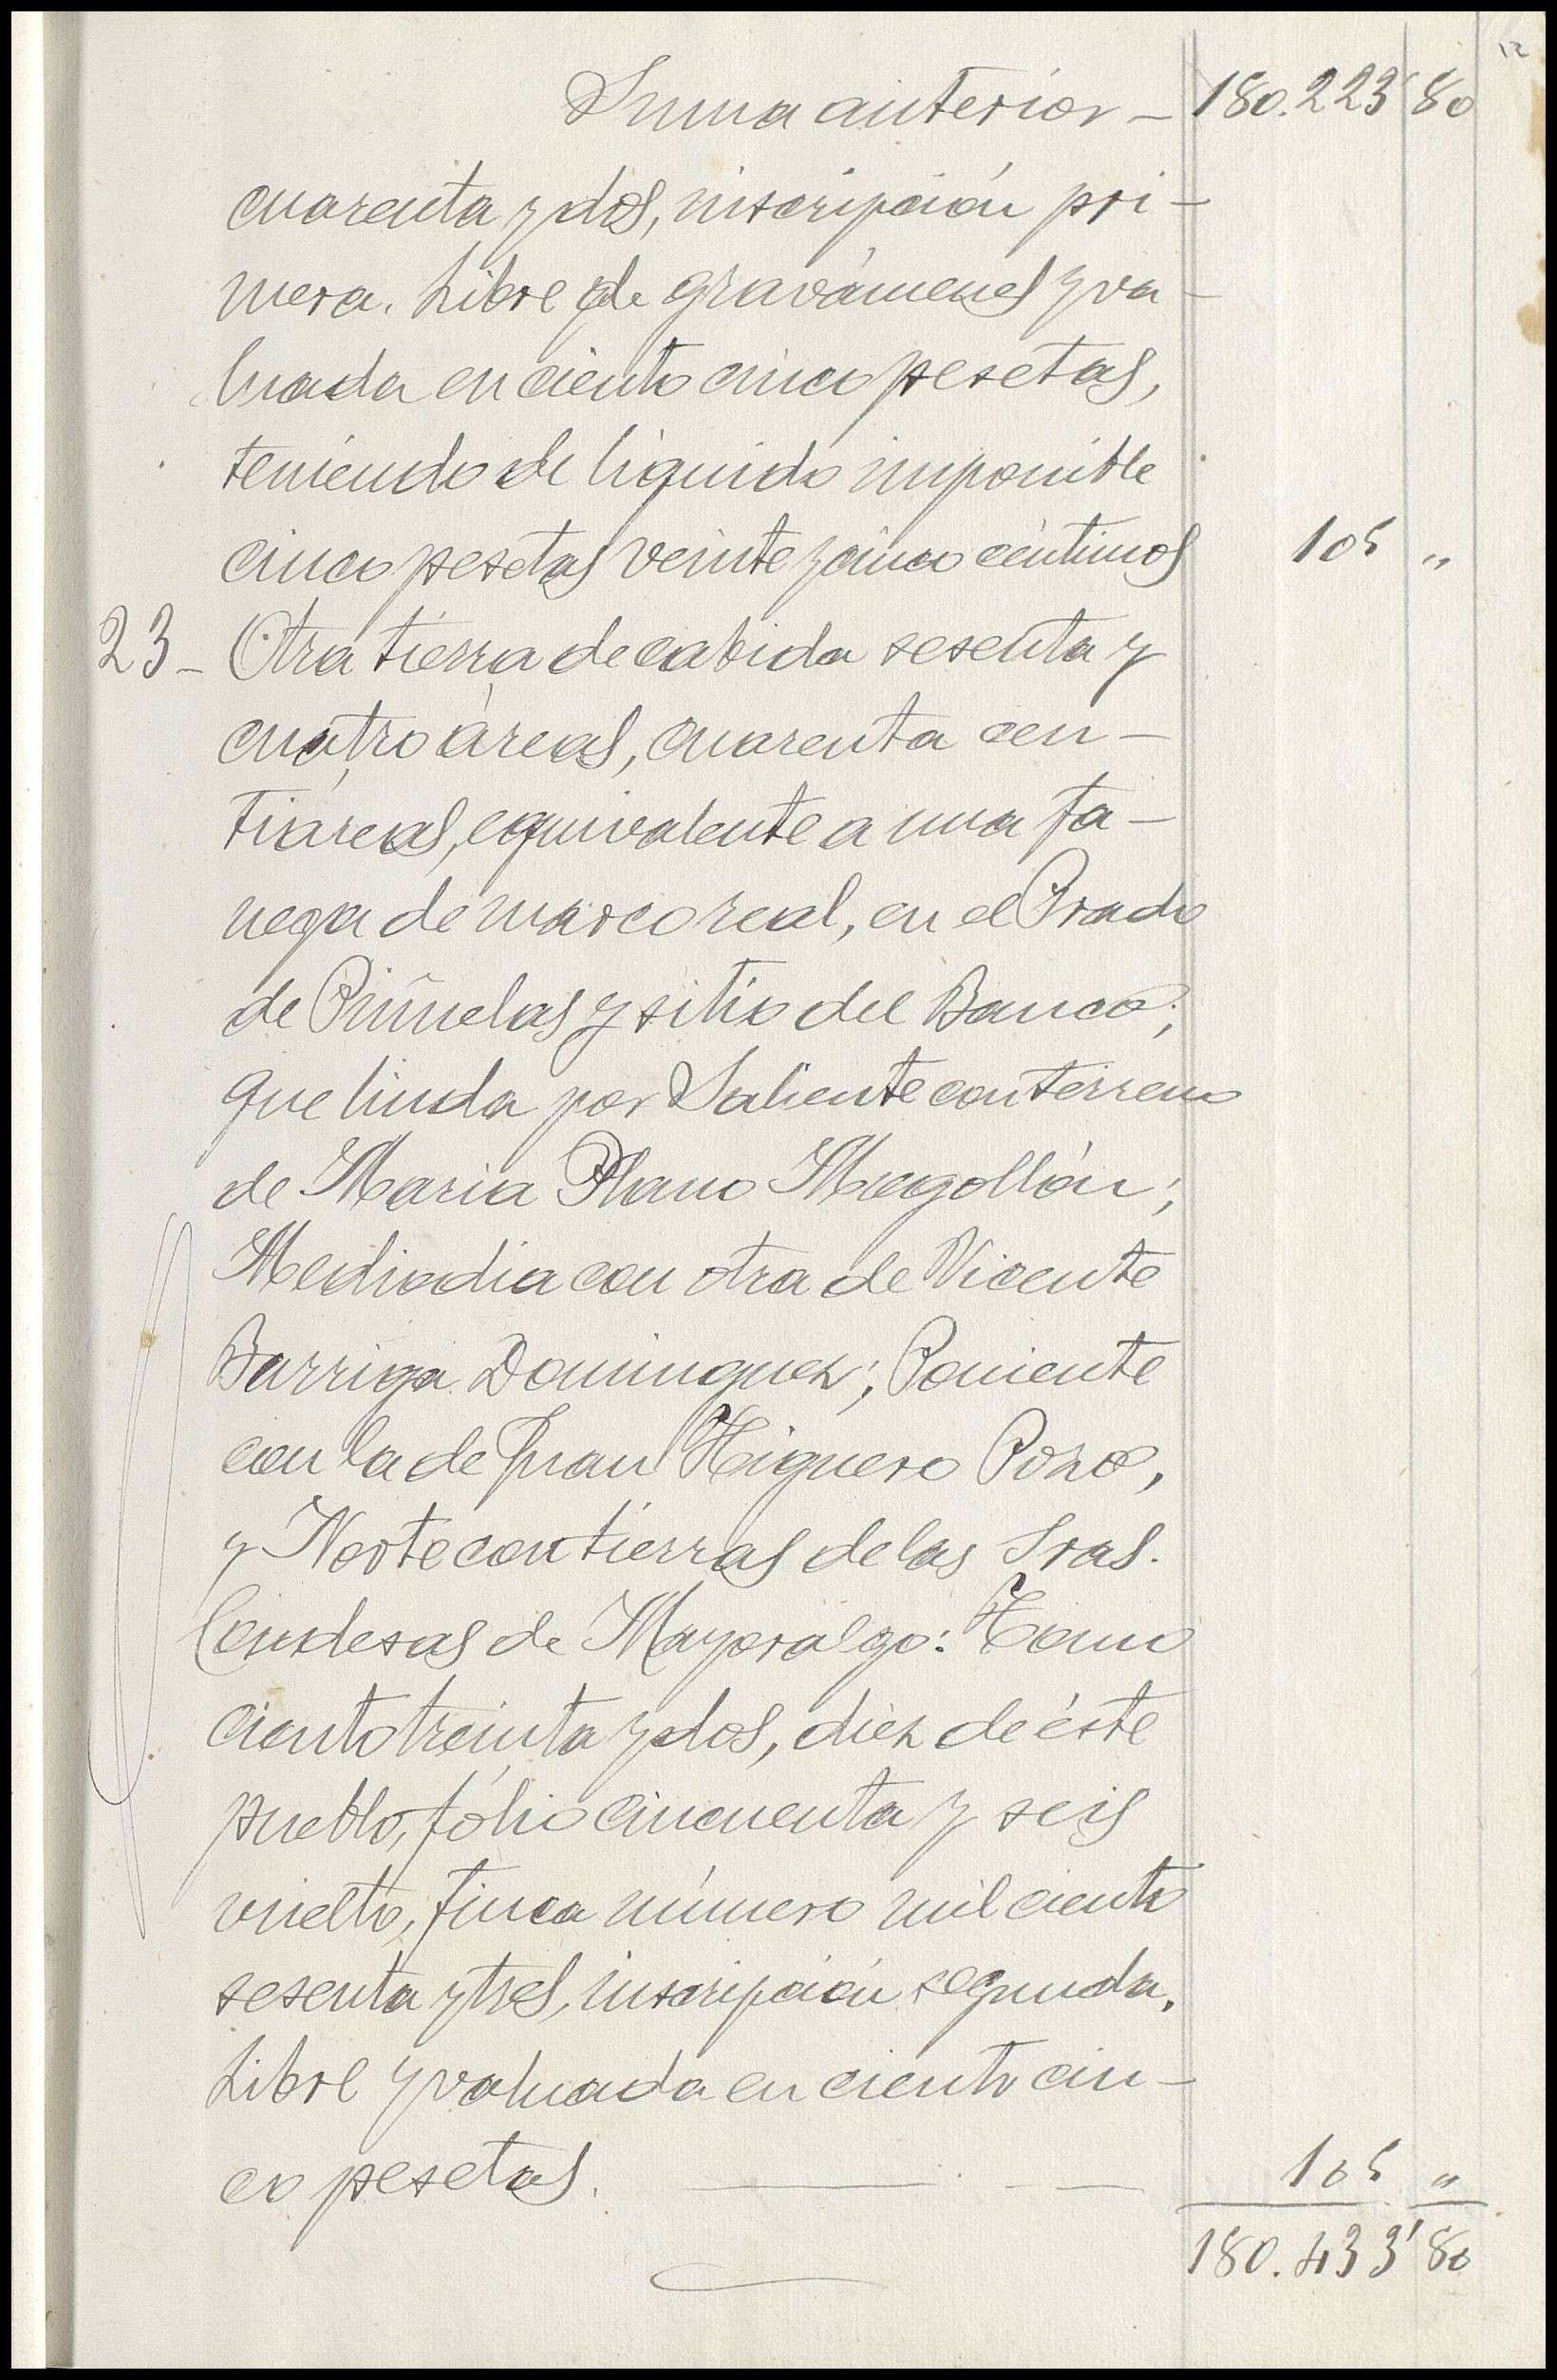 12
Suma anterior - 180.223'80
cuarenta y dos, inscripción pri-
mera. Libre de gravámenes y va-
luada en ciento cinco pesetas,
teniendo de líquido imponible
cinco pesetas veinte y cinco céntimos 105 "
23- Otra tierra de cabida sesenta y
cuatro áreas, cuarenta cen-
tiáreas, equivalente a una fa-
nega de marco real, en el Prado
de Piñuelas y sitio del Banco;
que linda por Saliente con terreno
de Maria Plano Mogollón;
Mediodia con otra de Vicente
Barriga Dominguez; Poniente
con la de Juan Higuero Pozo,
y Norte con tierras de las Sras.
Condesas de Mayoralgo: Tomo
ciento treinta y dos, diez de éste
pueblo, fólio cincuenta y seis
vuelto, finca número mil ciento
sesenta y tres, inscripción segunda.
Libre y valuada en ciento cin-
co pesetas. 105 "
180.433'80